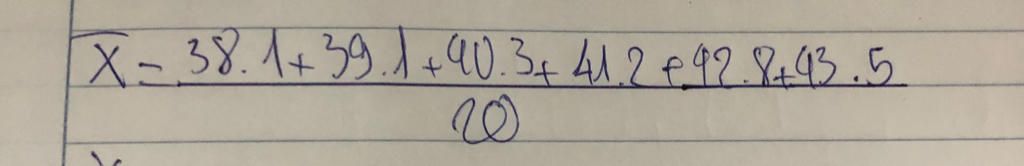 x̄ = 38.1+39.1+40.3+41.2+42.8+43.5
20